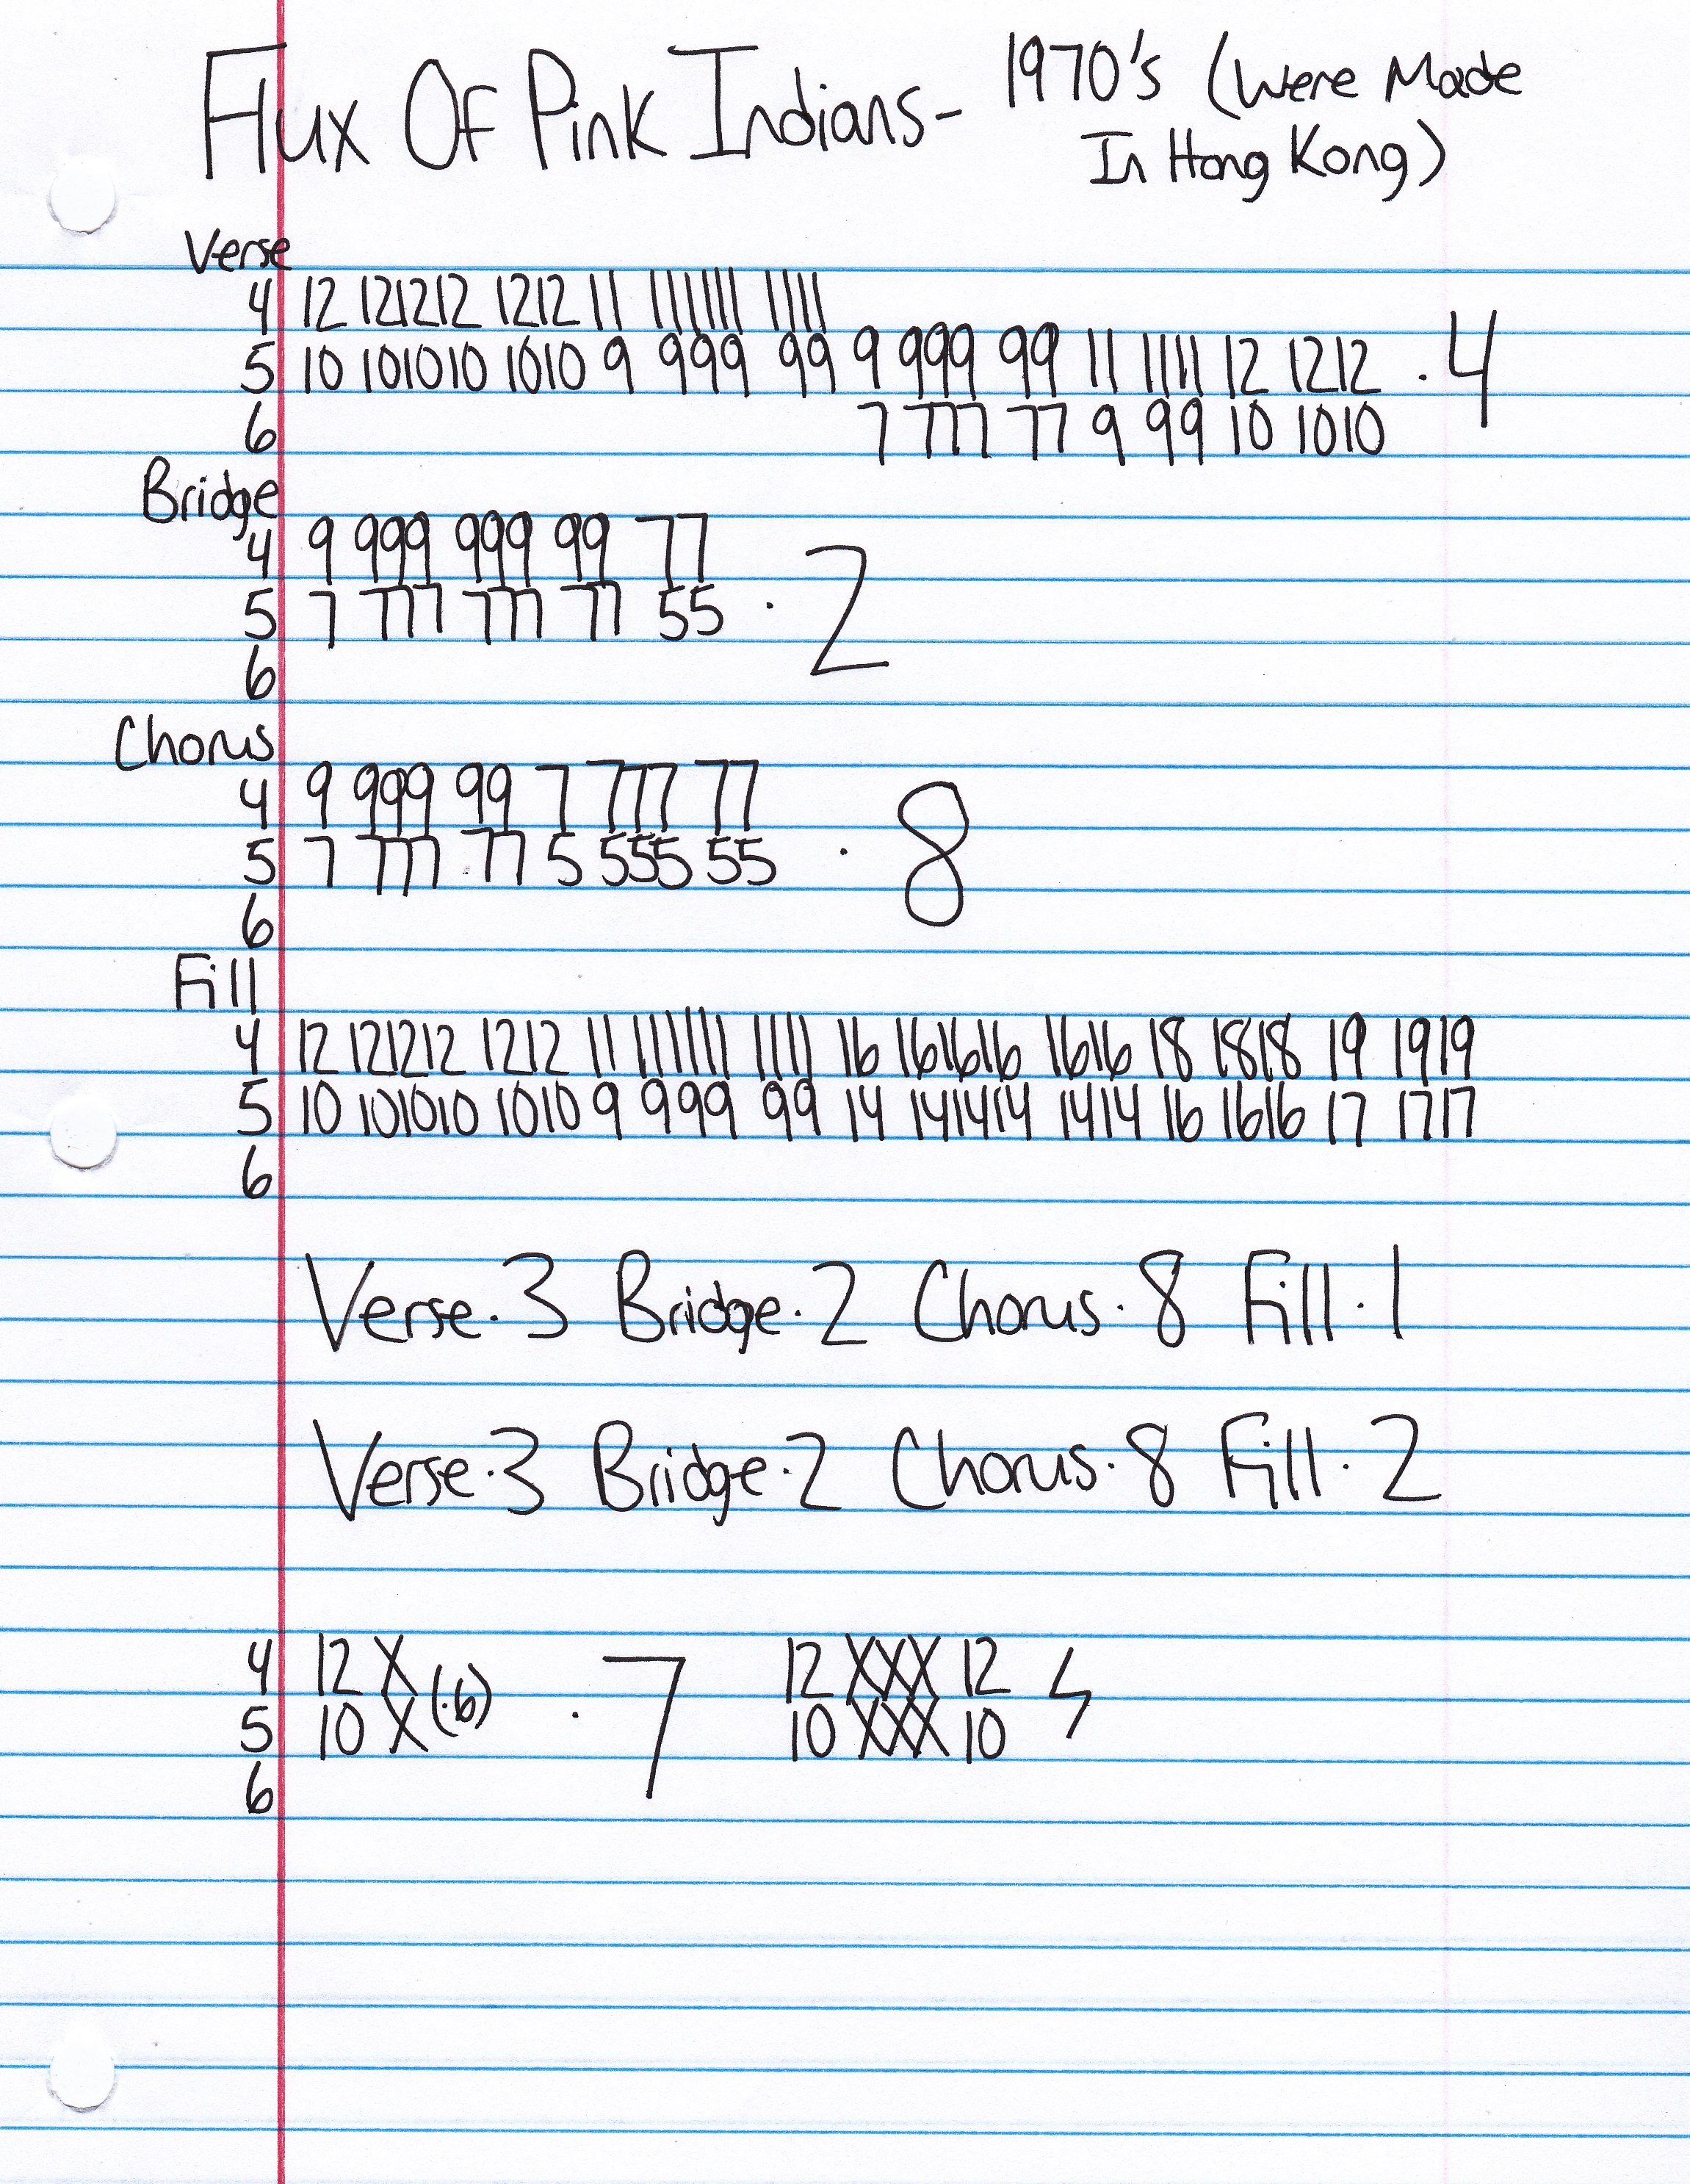 Flux Of Pink Indians- 1970's (Were Made
In Hong Kong)
Verse
4 12 121212 1212 11 111111 1111
5 10 101010 1010 9 999 99 9 999 99 11 1111 12 1212 · 4
6 7 777 77 9 99 10 1010
Bridge
4 9 999 999 99 77
5 7 777 777 77 55 · 2
6
Chorus
4 9 999 99 7 777 77
5 7 777 77 5 555 55 · 8
6
Fill
4 12 121212 1212 11 111111 1111 16 161616 1616 18 1818 19 1919
5 10 101010 1010 9 999 99 14 141414 1414 16 1616 17 1717
6
Verse·3 Bridge·2 Chorus·8 Fill·1
Verse·3 Bridge·2 Chorus·8 Fill·2
4 12 X (·6) · 7 12 XXX 12
5 10 X 10 XXX 10
6